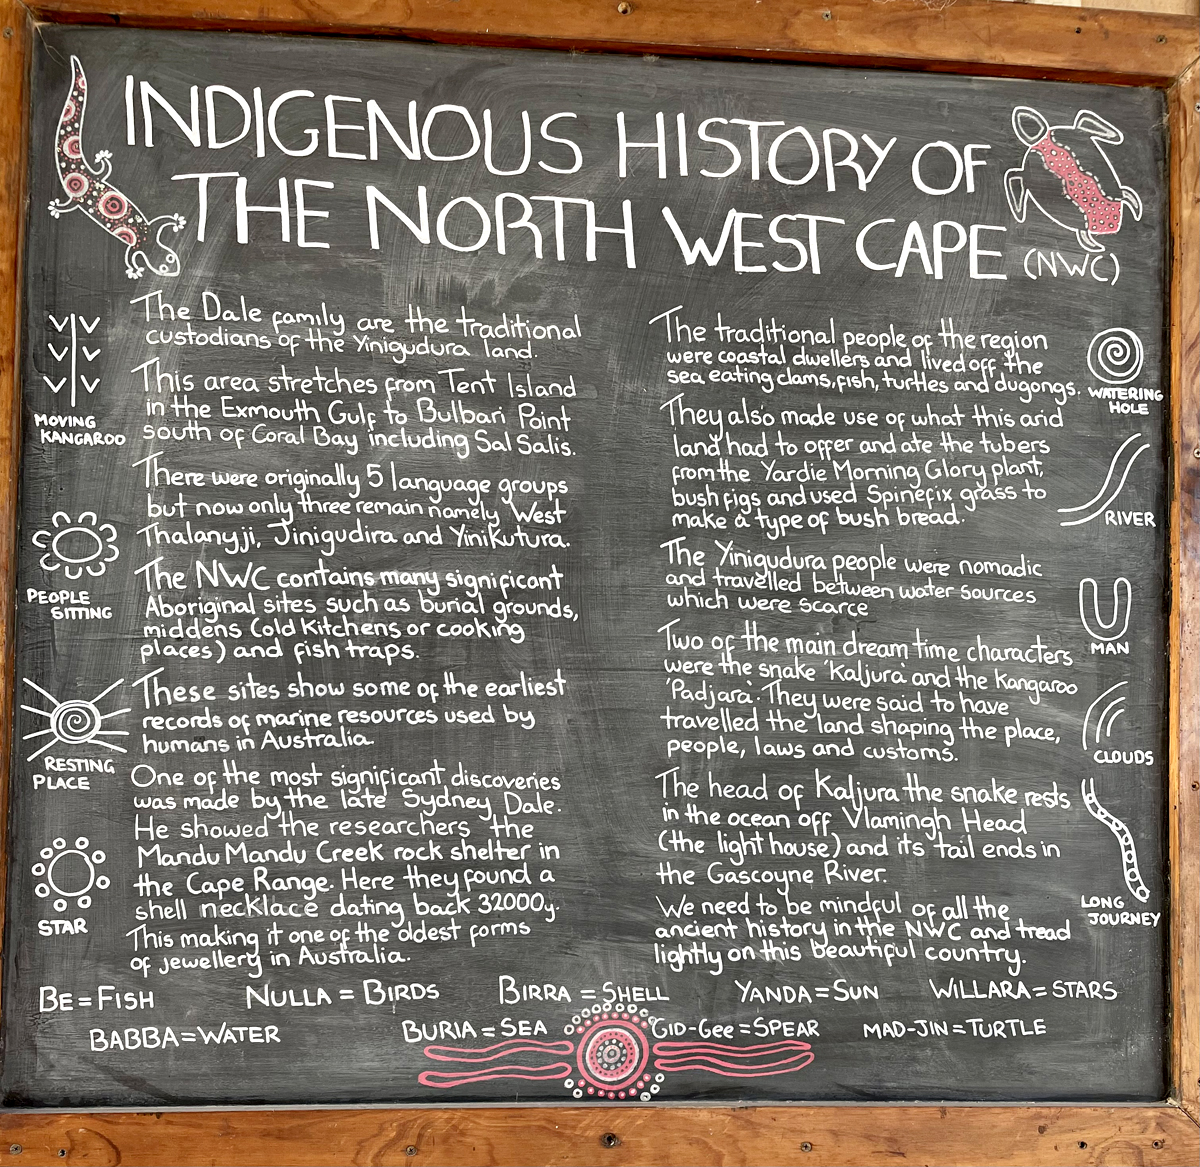 INDIGENOUS HISTORY OF
THE NORTH WEST CAPE (NWC)
The Dale family are the traditional
custodians of the Yinigudura land.
This area stretches from Tent Island
in the Exmouth Gulf to Bulbari Point
south of Coral Bay including Sal Salis.
There were originally 5 language groups
but now only three remain namely West
Thalanyji, Jinigudira and Yinikutura.
The NWC contains many significant
Aboriginal sites such as burial grounds,
middens (old kitchens or cooking
places) and fish traps.
These sites show some of the earliest
records of marine resources used by
humans in Australia.
One of the most significant discoveries
was made by the late Sydney Dale.
He showed the researchers the
Mandu Mandu Creek rock shelter in
the Cape Range. Here they found a
shell necklace dating back 32000y.
This making it one of the oldest forms
of jewellery in Australia.
MOVING
KANGAROO
PEOPLE
SITTING
RESTING
PLACE
STAR
The traditional people of the region
were coastal dwellers and lived off the
sea eating clams, fish, turtles and dugongs.
They also made use of what this arid
land had to offer and ate the tubers
from the Yardie Morning Glory plant,
bush figs and used Spinefix grass to
make a type of bush bread.
The Yinigudura people were nomadic
and travelled between water sources
which were scarce
Two of the main dream time characters
were the snake 'Kaljura' and the Kangaroo
'Padjara'. They were said to have
travelled the land shaping the place,
people, laws and customs.
The head of Kaljura the snake rests
in the ocean off Vlamingh Head
(the light house) and its tail ends in
the Gascoyne River.
We need to be mindful of all the
ancient history in the NWC and tread
lightly on this beautiful country.
WATERING
HOLE
RIVER
MAN
CLOUDS
LONG
JOURNEY
BE = FISH NULLA = BIRDS BIRRA = SHELL YANDA = SUN WILLARA = STARS
BABBA = WATER BURIA = SEA GID-Gee = SPEAR MAD-JIN = TURTLE